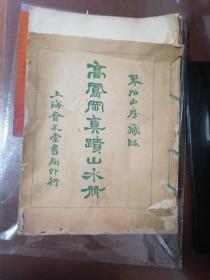 琴石山房藏版
高鳳岡真蹟山水冊
上海會文堂書局印行